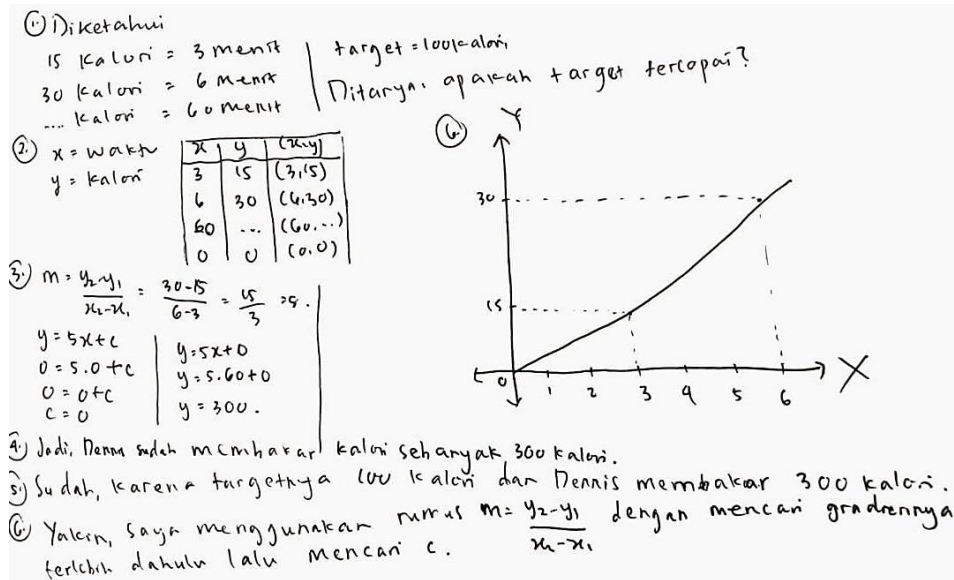 1. Diketahui
15 kalori = 3 menit
30 kalori = 6 menit
.... kalori = 60 menit
target = 100 kalori,
Ditanya. apakah target tercapai?
2. x = waktu
y = kalori
x y (x,y)
3 15 (3,15)
6 30 (6,30)
60 ... (60,...)
0 0 (0,0)
3. m = y₂-y₁ / x₂-x₁ = 30-15 / 6-3 = 15 / 3 = 5.
y = 5x+c
0 = 5.0+c
0 = 0+c
c = 0
y = 5x+0
y = 5.60+0
y = 300.
6. Y
30
15
0 1 2 3 4 5 6 X
4. Jadi, Dennis sudah membakar kalori sebanyak 300 kalori.
5. Sudah, karena targetnya 100 kalori dan Dennis membakar 300 kalori.
6. Yakin, saya menggunakan rumus m = y₂-y₁ / x₂-x₁ dengan mencari gradiennya
terlebih dahulu lalu mencari c.